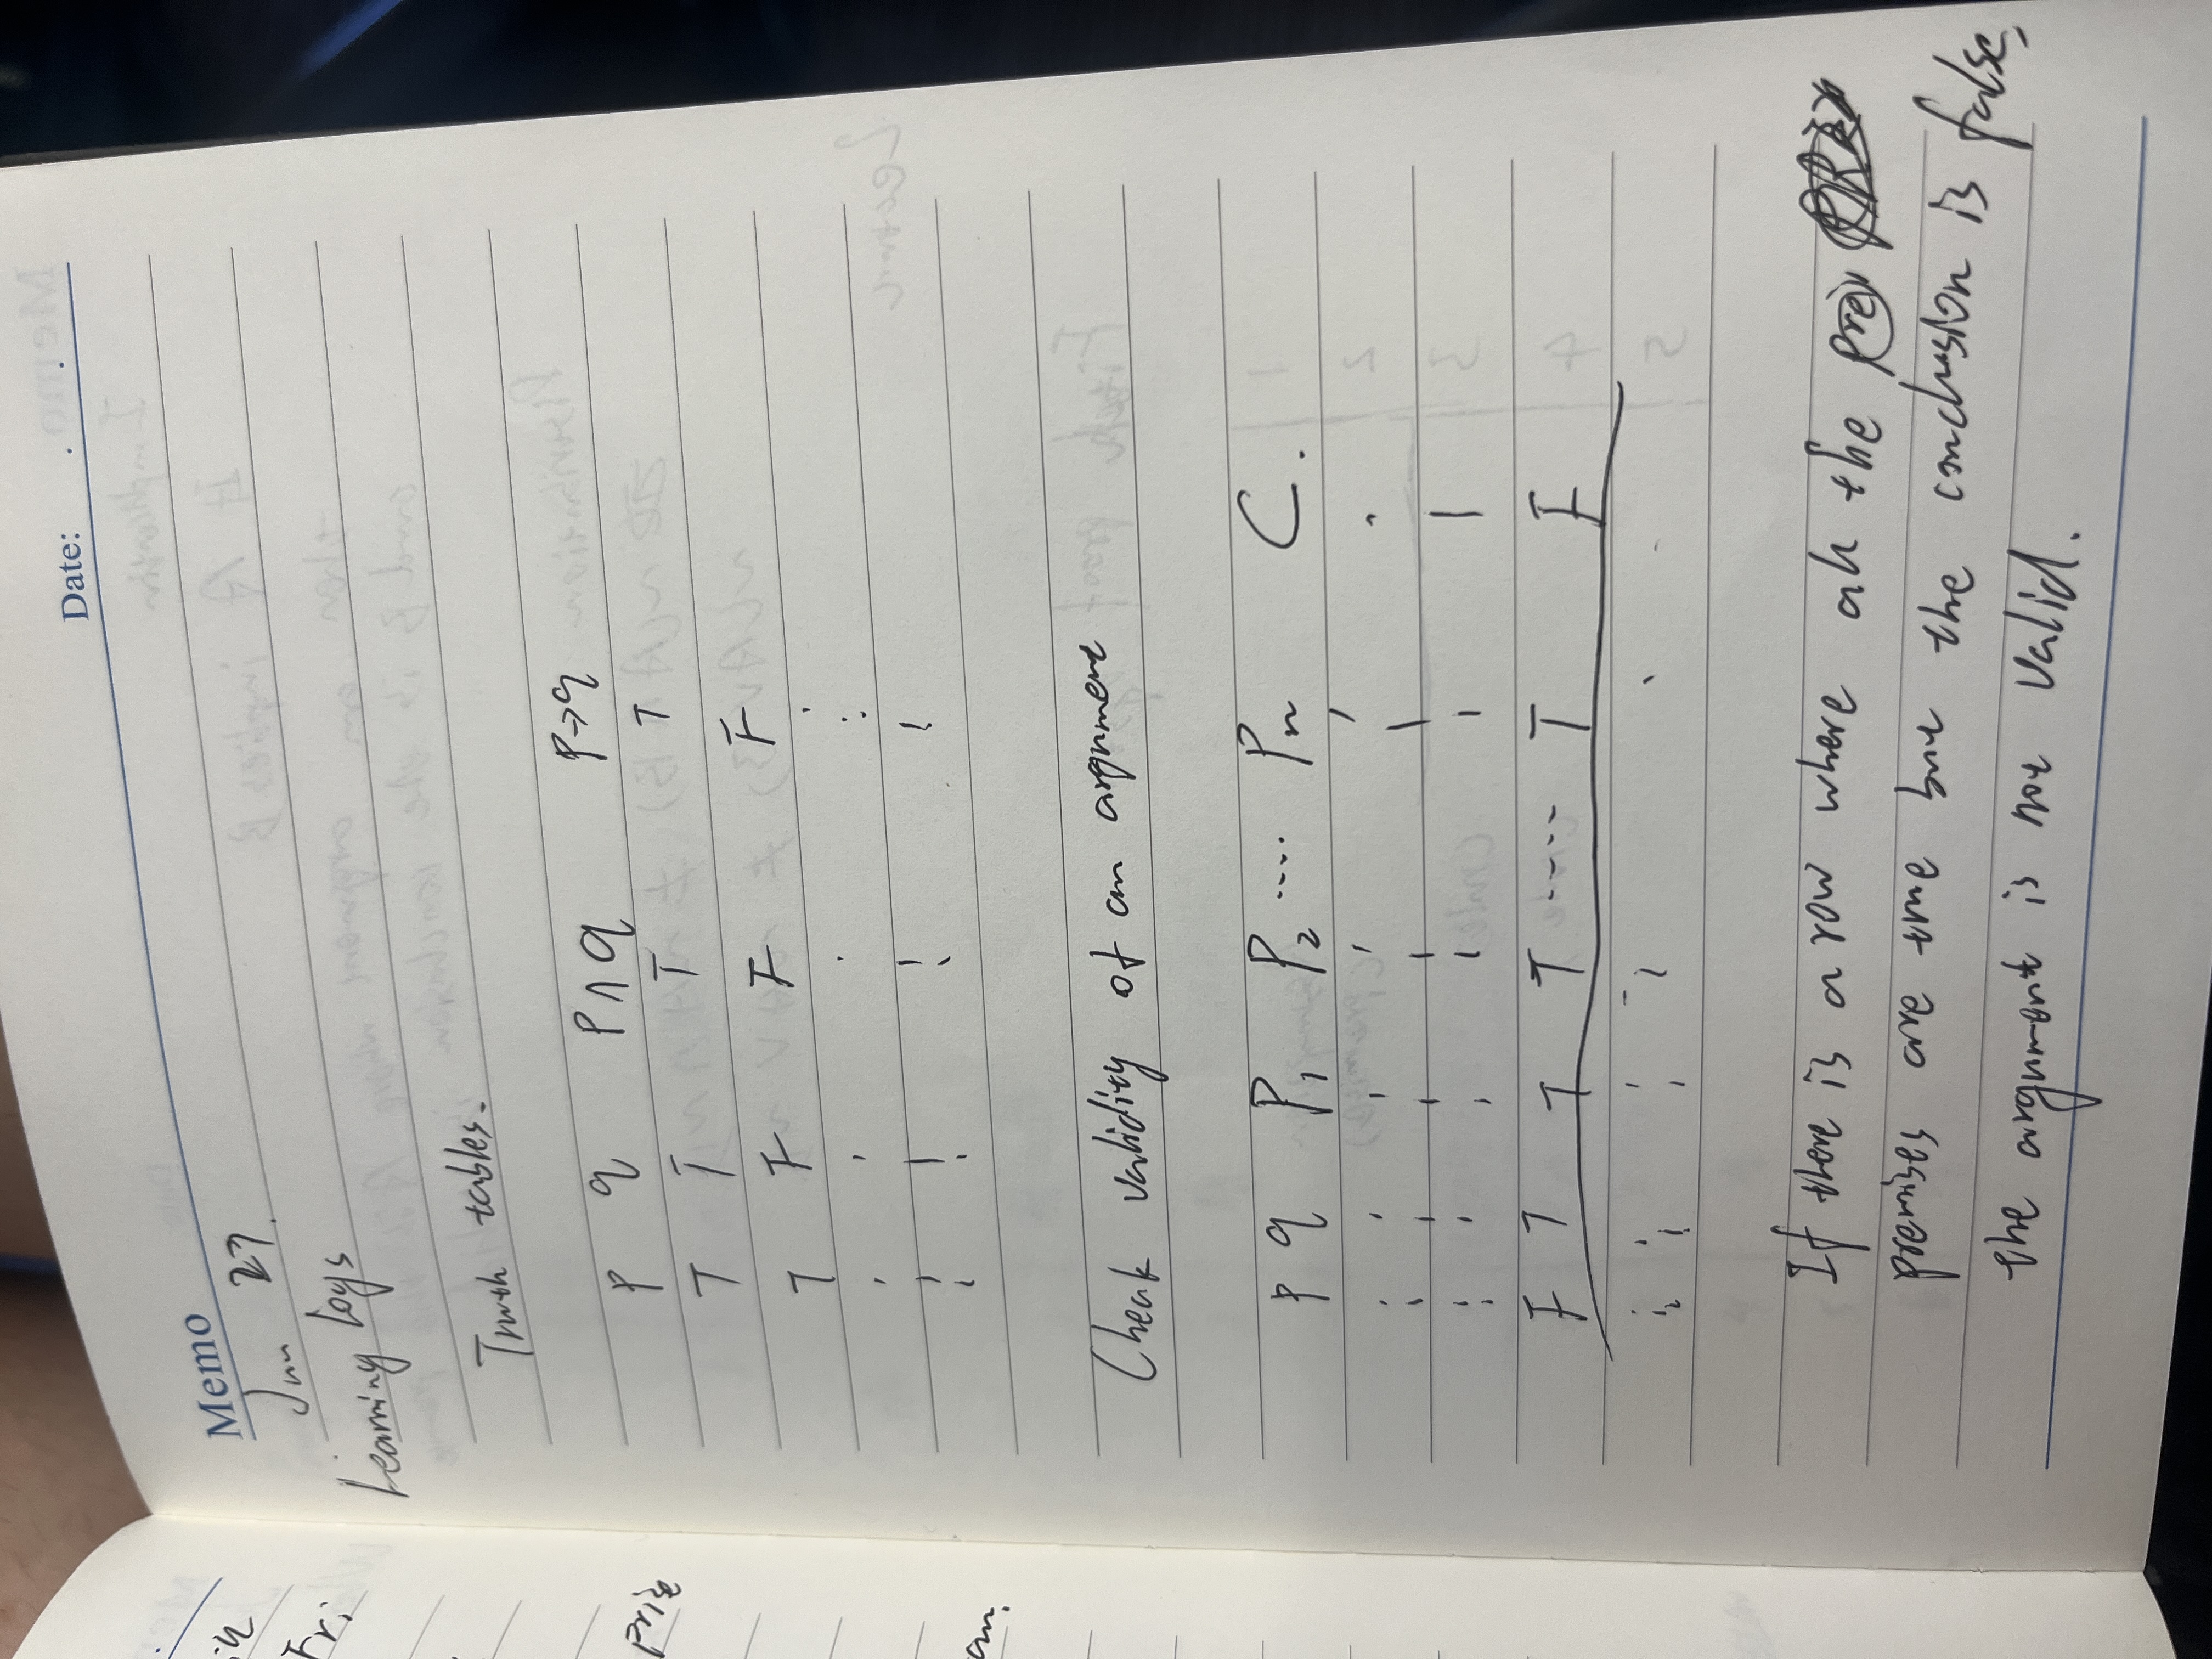 Date:
Memo
Jun 27.
Learning logs
Truth tables.
p q P∧q P→q
T T T T
T F F F
Check validity of an argument
p q P₁ P₂ .... Pn C.
F T T T ----- T F
If there is a row where all the pre
premises are true but the conclusion is false,
the argument is not valid.
in
Fri,
prize
am.